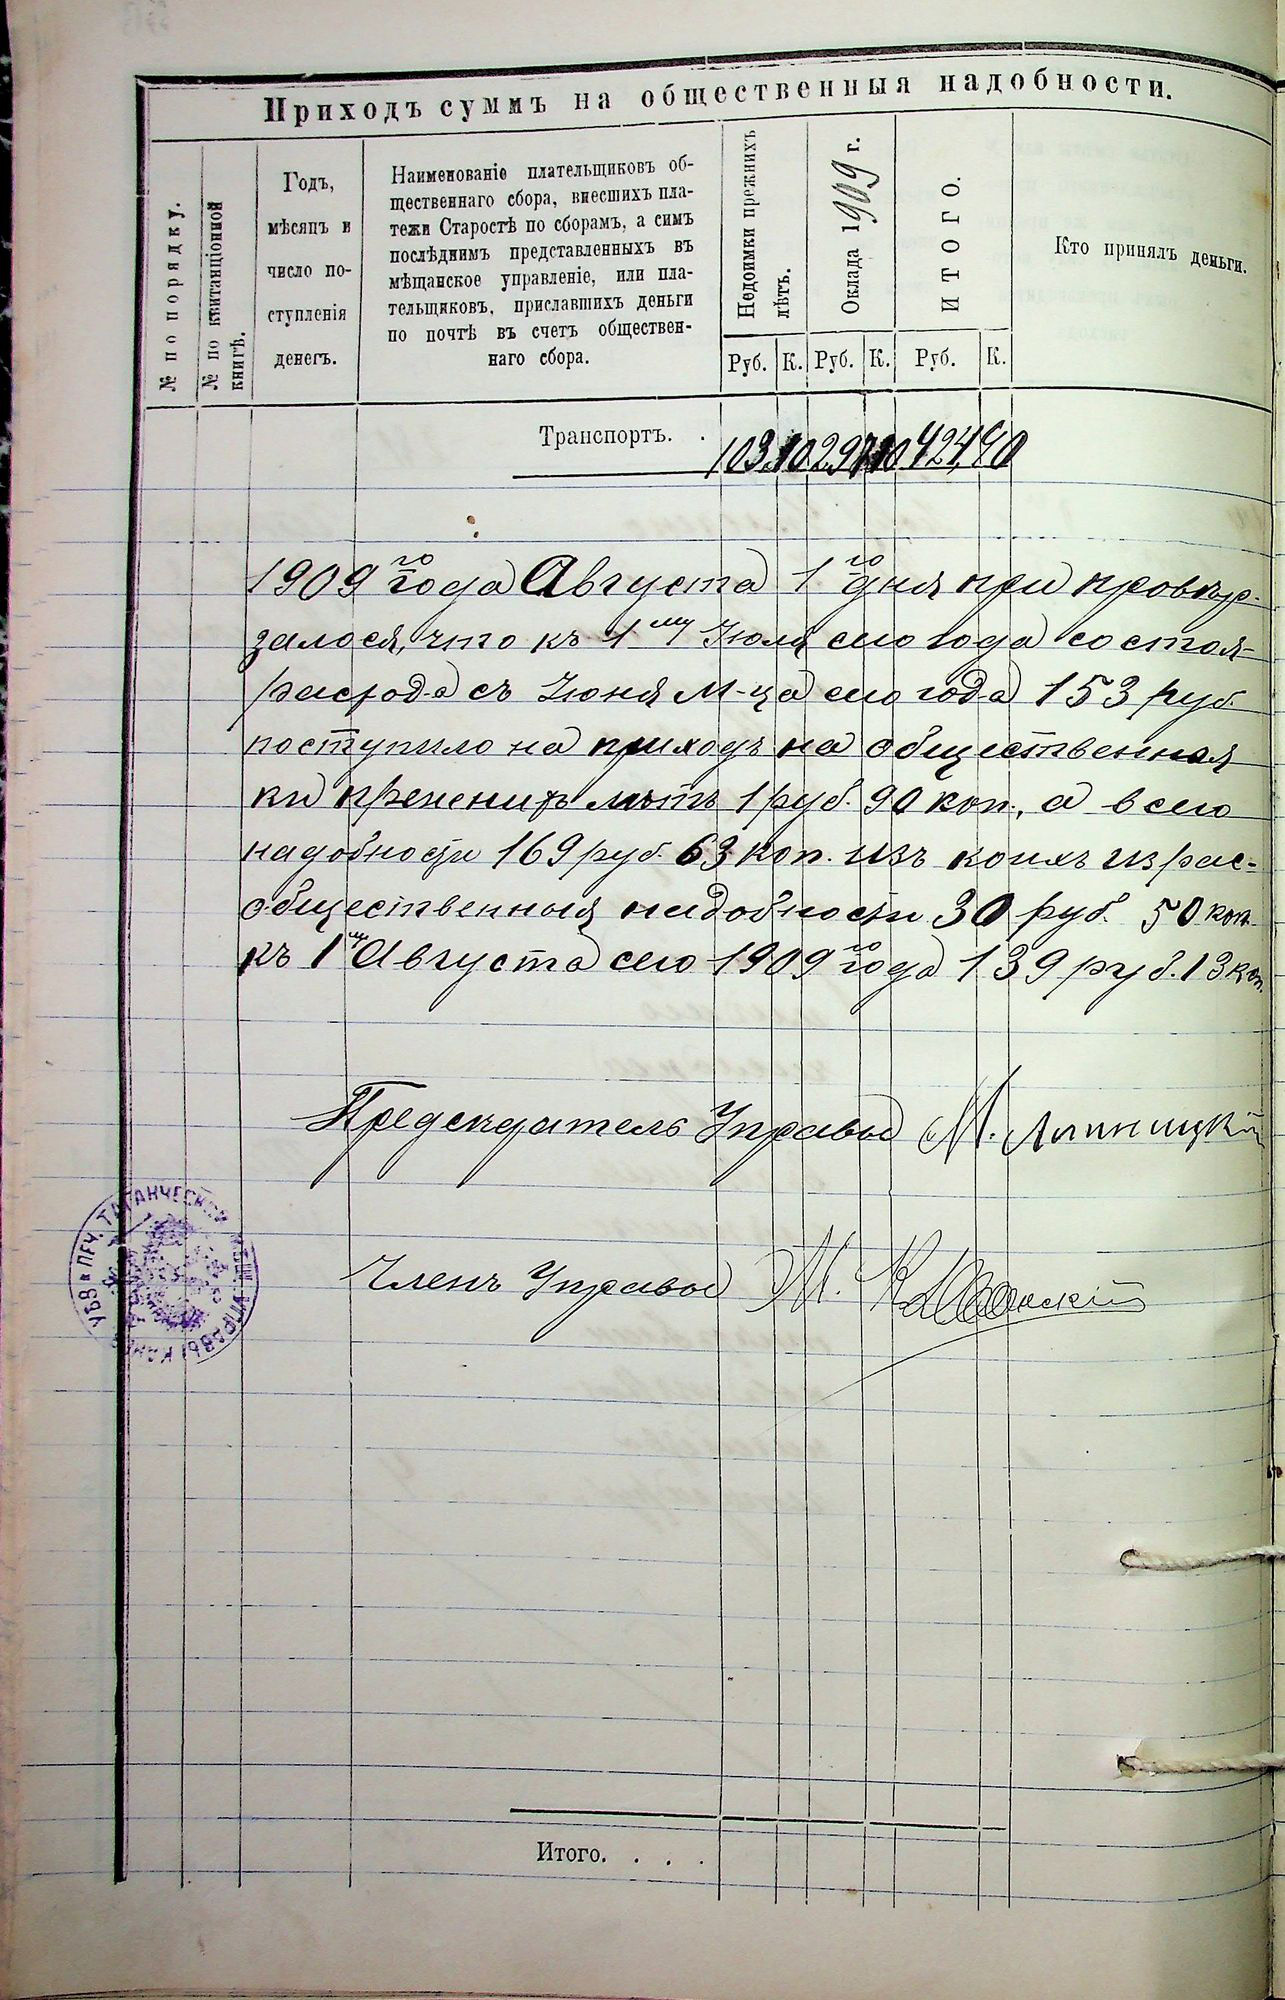 Приходъ суммъ на общественныя надобности.
№ по порядку.
№ по квитанціонной
книгѣ.
Годъ,
мѣсяцъ и
число по-
ступленія
денегъ.
Наименованіе плательщиковъ об-
щественнаго сбора, внесшихъ пла-
тежи Старостѣ по сборамъ, а симъ
послѣднимъ представленныхъ въ
мѣщанское управленіе, или пла-
тельщиковъ, приславшихъ деньги
по почтѣ въ счетъ обществен-
наго сбора.
Недоимки прежнихъ
лѣтъ.
Оклада 1909 г.
ИТОГО.
Кто принялъ деньги.
Руб. К. Руб. К. Руб. К.
Транспортъ. . 103 10 297 10 424 40
1909го года Августа 1го дня при провѣр-
залося, что къ 1му Іюля сего года состоя-
расхода съ Іюня м-ца сего года 153 руб.
поступило на приходъ на общественныя
ки прежнихъ лѣтъ 1 руб. 90 коп., а всего
надобности 169 руб. 63 коп. изъ коихъ израс-
общественныя надобности 30 руб. 50 коп.
къ 1му Августа сего 1909го года 139 руб. 13 коп.
Предсѣдатель Управы М. Липницкій
Членъ Управы М.
ПЕЧ. ТАГАНЧЕСКОЙ МѢЩ. УПРАВЫ КАН. УѢЗ.
Итого. . . .